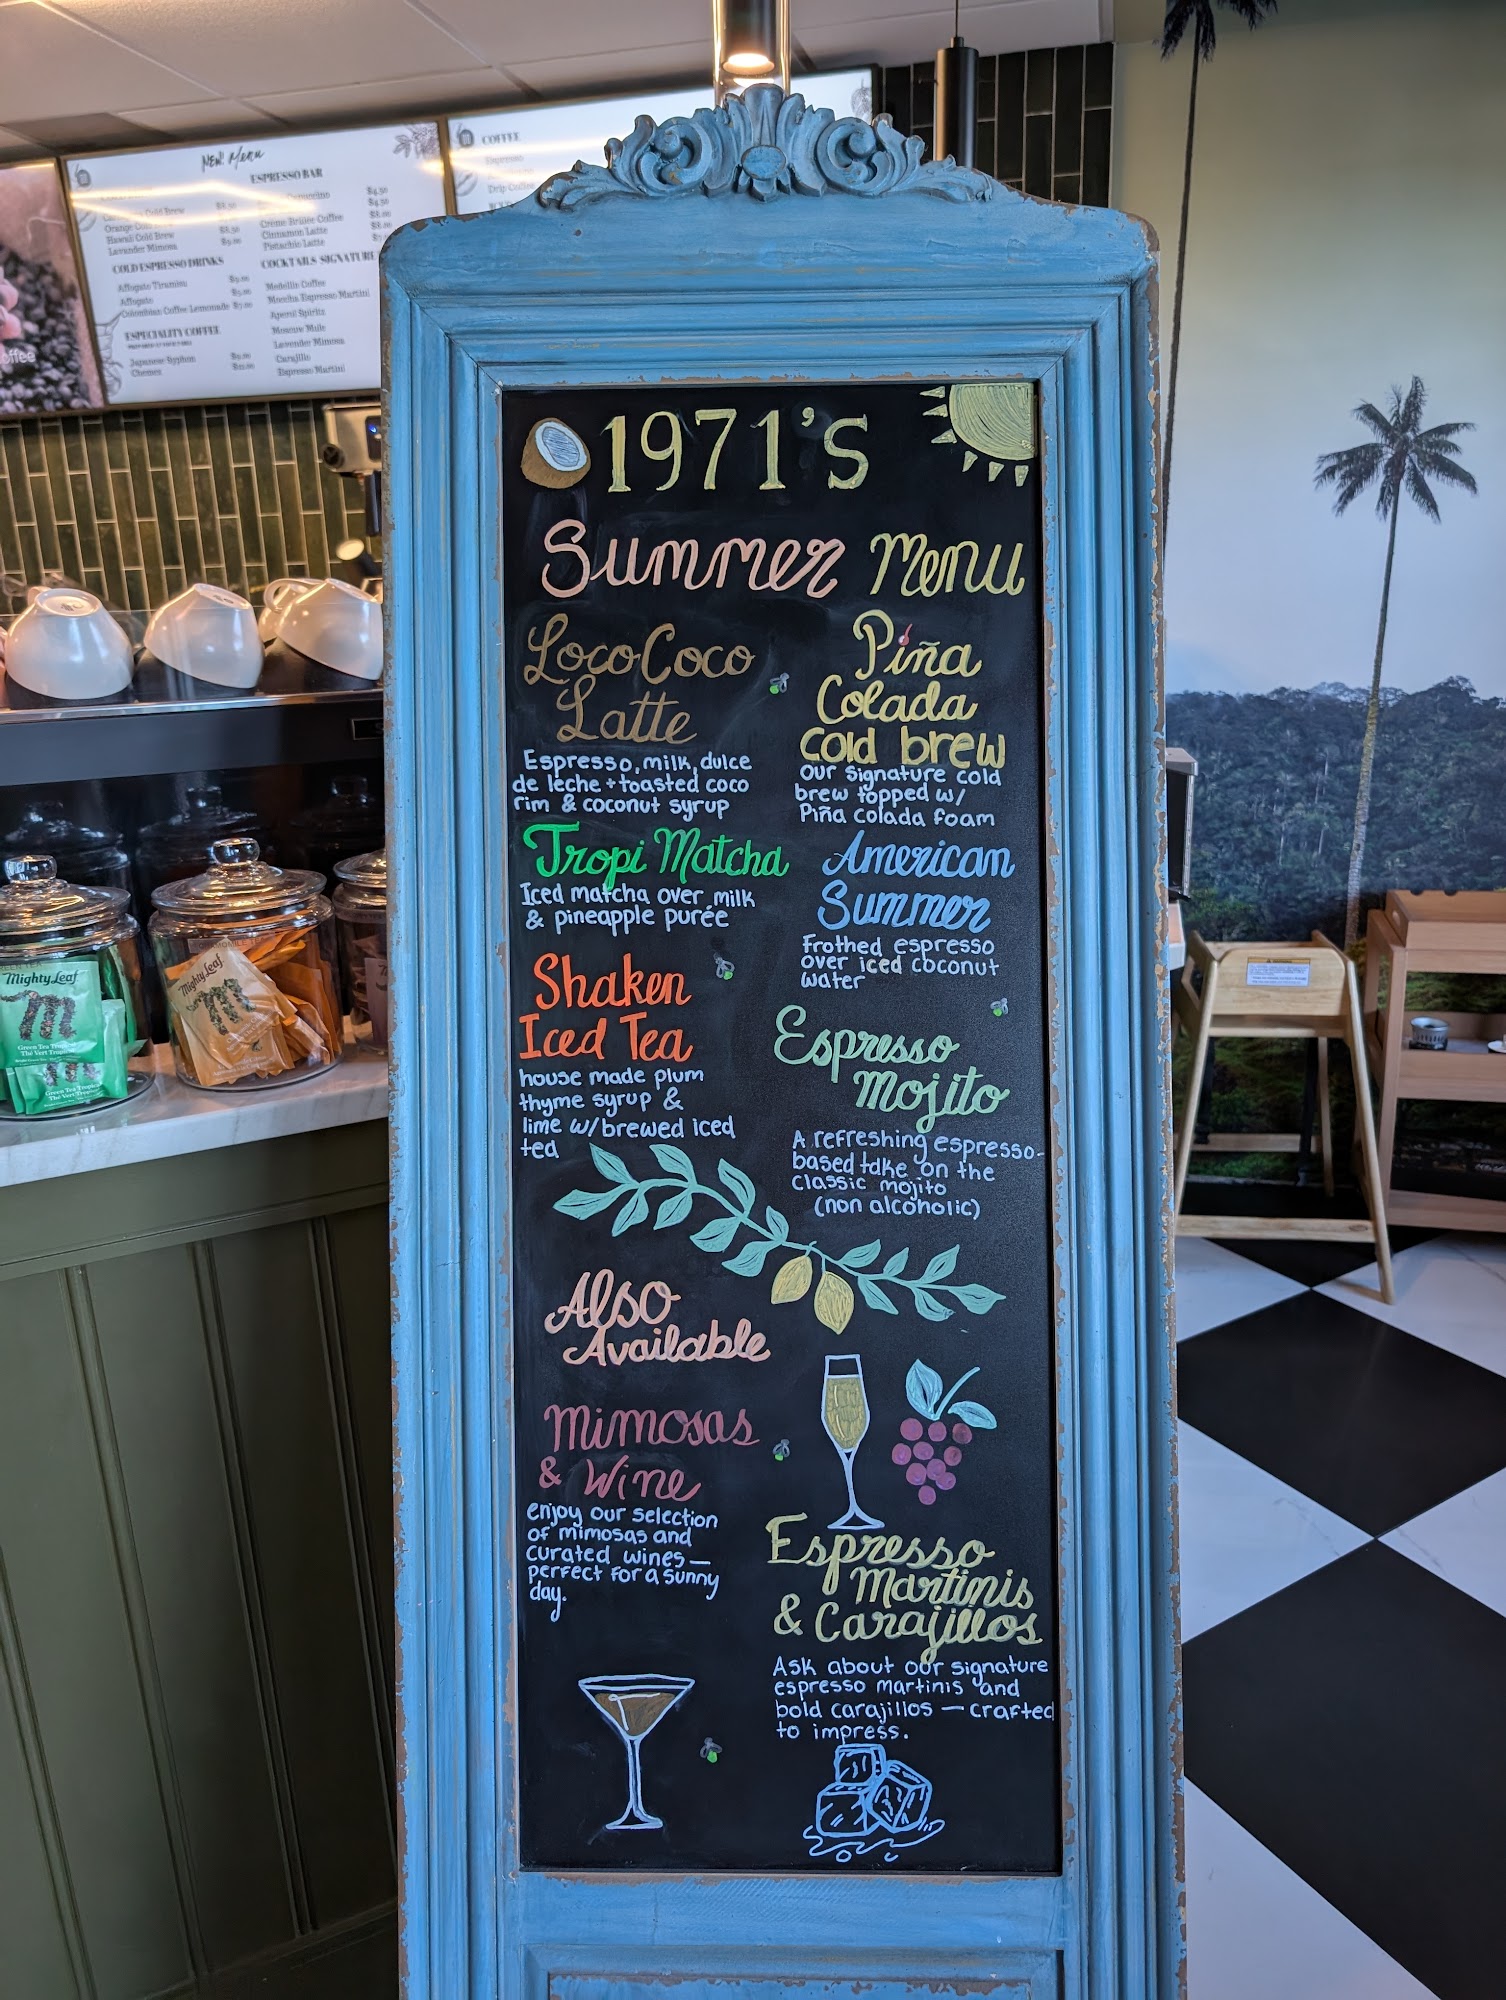 NEW Menu
ESPRESSO BAR
Orange Cold Brew
Hawaii Cold Brew
Lavander Mimosa
$8.50
$9.00
$4.50
$4.50
Créme Brulée Coffee
Cinnamon Latte
Pistachio Latte
COLD ESPRESSO DRINKS
Affogato Tiramisu $9.00
Affogato
Colombian Coffee Lemonade $7.00
ESPECIALITY COFFEE
Japanese Syphon
Chemex
COCKTAILS SIGNATURE
Medellin Coffee
Moccha Espresso Martini
Aperol Spiritz
Moscow Mule
Lavender Mimosa
Carajillo
Espresso Martini
COFFEE
Espresso
Drip Coffee
offee
1971's
Summer Menu
Loco Coco
Latte
Espresso, milk, dulce
de leche + toasted coco
rim & coconut syrup
Tropi Matcha
Iced matcha over milk
& pineapple purée
Shaken
Iced Tea
house made plum
thyme syrup &
lime w/ brewed iced
tea
Piña
Colada
Cold brew
our signature cold
brew topped w/
Piña colada foam
American
Summer
Frothed espresso
over iced coconut
water
Espresso
Mojito
A refreshing espresso-
based take on the
classic mojito
(non alcoholic)
Also
Available
Mimosas
& Wine
enjoy our selection
of mimosas and
curated wines—
perfect for a sunny
day.
Espresso
Martinis
& Carajillos
Ask about our signature
espresso martinis and
bold carajillos — crafted
to impress.
Mighty Leaf
Green Tea Tropical
Thé Vert Tropical
Green Tea Tropical
Thé Vert Tropical
Mighty Leaf